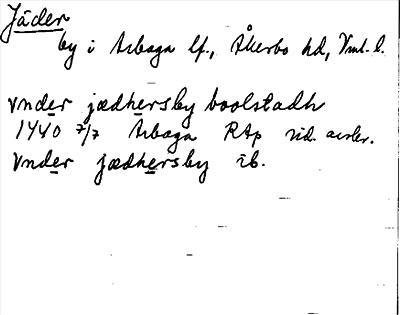 Jäder
by i Arboga lf., Åkerbo hd, Vml. l.
vnder jædhersby boolstadh
1440 7/7 Arboga RAp vid. avskr.
vnder jædhersby ib.